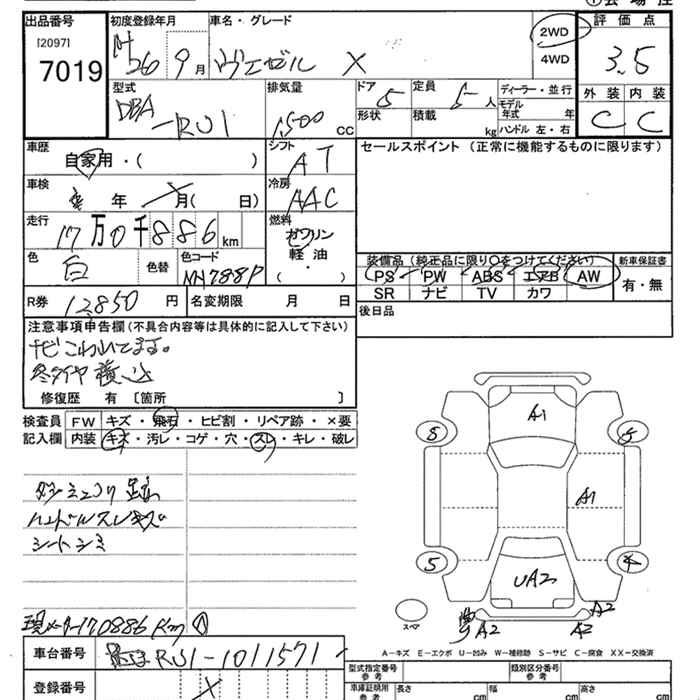 出品番号
[2097]
7019
初度登録年月
H26 9月
車名・グレード
ヴェゼル X
2WD
4WD
評価点
3.5
外装 内装
C C
型式
DBA
-RU1
排気量
1500 CC
ドア 5
形状
定員 5 人
積載 kg
ディーラー・並行
モデル年式 年
ハンドル 左・右
車歴
自家用・( )
シフト
AT
セールスポイント (正常に機能するものに限ります)
車検
年 月( 日)
冷房
AAC
走行
17万0千886km
燃料
ガソリン
軽油
( ・ )
色
白
色替
色コード
NH788P
装備品 (純正品に限り○をつけてください)
PS PW ABS エアB AW
SR ナビ TV カワ
新車保証書
有・無
R券 12,850 円
名変期限 月 日
後日品
注意事項申告欄(不具合内容等は具体的に記入して下さい)
ナビこわれてます。
冬タイヤ積込
修復歴 有 〔箇所 〕
検査員
記入欄
FW キズ・飛石・ヒビ割・リペア跡・×要
内装 キズ・汚レ・コゲ・穴・スレ・キレ・破レ
ハンドルスレキズ
シートシミ
現メーター170886Km
A1
5
5
A1
5
4
UA2
A2
A2
A2
スペア
A-キズ E-エクボ U-凹み W-補修跡 S-サビ C-腐食 XX-交換済
車台番号
RU1-1011571
登録番号
型式指定番号
参考
類別区分番号
参考
車庫証明用
参考
長さ cm
幅 cm
高さ cm